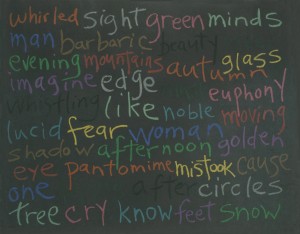 whirled sight green minds
man barbaric beauty
evening mountains autumn glass
imagine edge euphony
whistling like noble moving
lucid fear woman
shadow afternoon golden
eye pantomime mistook cause
one after circles
tree cry know feet snow